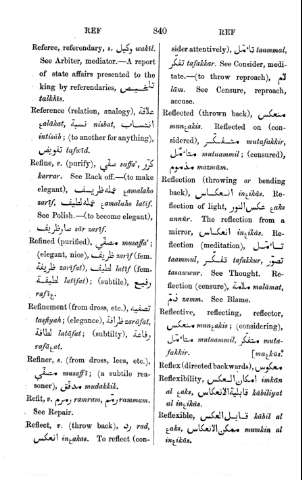 REF 840 REF
Referee, referendary, s. وكيل wakīl.
See Arbiter, mediator.—A report
of state affairs presented to the
king by referendaries, تلخيص
talkhīs.
Reference (relation, analogy), علاقة
ȝalāḳat, نسبة nisbat, انتساب
intisāb; (to another for anything),
تفويض tafwīd.
Refine, v. (purify), صفّى saffa', كرّر
karrar. See Rack off.—(to make
elegant), عمله ظريف ȝamalaho
zarīf, عمله لطيف ȝamalaho latīf.
See Polish.—(to become elegant),
صار ظريف sār zarīf.
Refined (purified), مصفّى musaffa';
(elegant, nice), ظريف zarīf (fem.
ظريفة zarīfat), لطيف latīf (fem.
لطيفة latīfat); (subtile), رفيع
rafīȝ.
Refinement (from dross, etc.), تصفية
tasfiyah; (elegance), ظرافة zarāfat,
لطافة latāfat; (subtilty), رفاعة
rafāȝat.
Refiner, s. (from dross, lees, etc.),
مصفّي musaffī; (a subtile rea-
soner), مدقّق mudakkik.
Refit, v. رمرم ramram, رمّم rammam.
See Repair.
Reflect, v. (throw back), ردّ rad,
انعكس inȝakas. To reflect (con-
sider attentively), تأمّل taammal,
تفكّر tafakkar. See Consider, medi-
tate.—(to throw reproach), لام
lām. See Censure, reproach,
accuse.
Reflected (thrown back), منعكس
munȝakis. Reflected on (con-
sidered), متفكّر mutafakkir,
متأمّل mutaammil; (censured),
مذموم mazmūm.
Reflection (throwing or bending
back), انعكاس inȝikās. Re-
flection of light, عكس النور ȝaks
annūr. The reflection from a
mirror, انعكاس inȝikās. Re-
flection (meditation), تأمّل
taammul, تفكّر tafakkur, تصوّر
tasawwur. See Thought. Re-
flection (censure), ملامة malāmat,
ذمّ zamm. See Blame.
Reflective, reflecting, reflector,
منعكس munȝakis; (considering),
متأمّل mutaammil, متفكّر muta-
fakkir. [maȝkūs.
Reflex (directed backwards), معكوس
Reflexibility, امكان العكس imkān
al ȝaks, قابلية الانعكاس kābiliyat
al inȝikās.
Reflexible, قابل العكس kābil al
ȝaks, ممكن الانعكاس mumkin al
inȝikās.